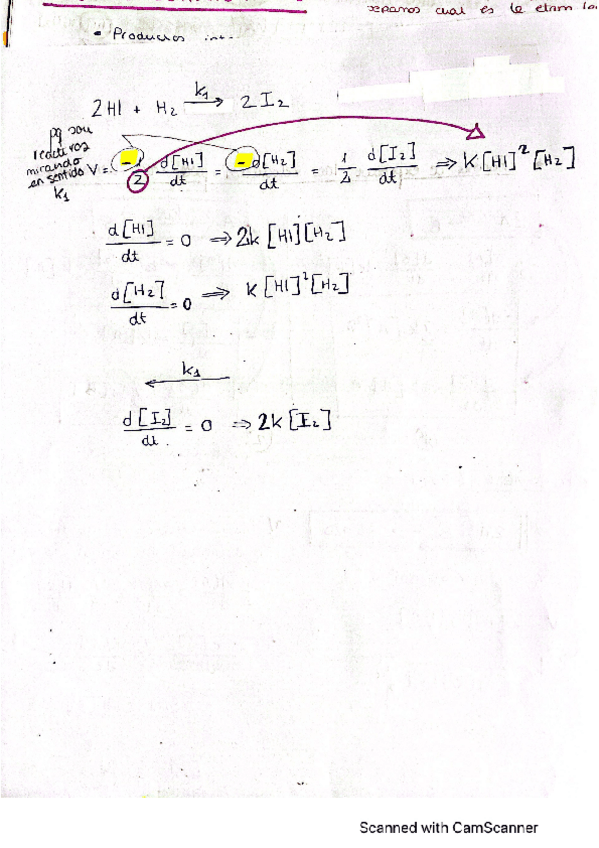 sepamos cual es la
- Productos int..
2HI + H₂ —k₁→ 2I₂
pq sou
reactivos
mirando
en sentido
k₁
V = -1/2 d[HI]/dt = - d[H₂]/dt = 1/2 d[I₂]/dt ⇒ K[HI]²[H₂]
d[HI]/dt = 0 ⇒ 2k[HI][H₂]
d[H₂]/dt = 0 ⇒ K[HI]²[H₂]
←k₁—
d[I₂]/dt = 0 ⇒ 2K[I₂]
Scanned with CamScanner